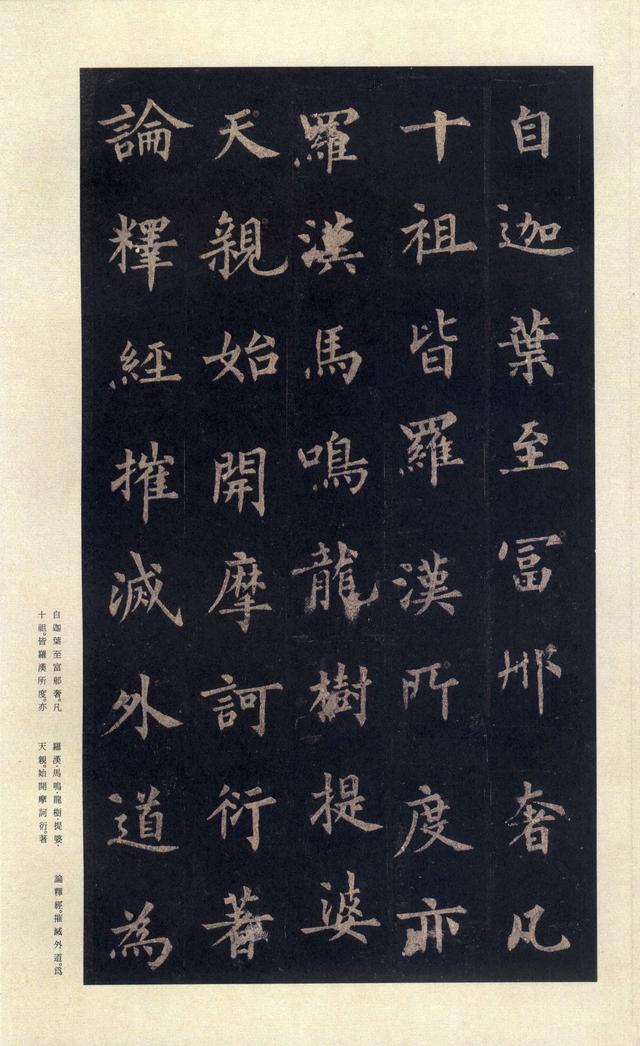 自迦葉至富那奢凡
十祖皆羅漢所度亦
羅漢馬鳴龍樹提婆
天親始開摩訶衍著
論釋經摧滅外道為
自迦葉至富那奢。凡
十祖。皆羅漢所度。亦
羅漢・馬鳴・龍樹・提婆・
天親。始開摩訶衍。著
論釋經。摧滅外道。爲